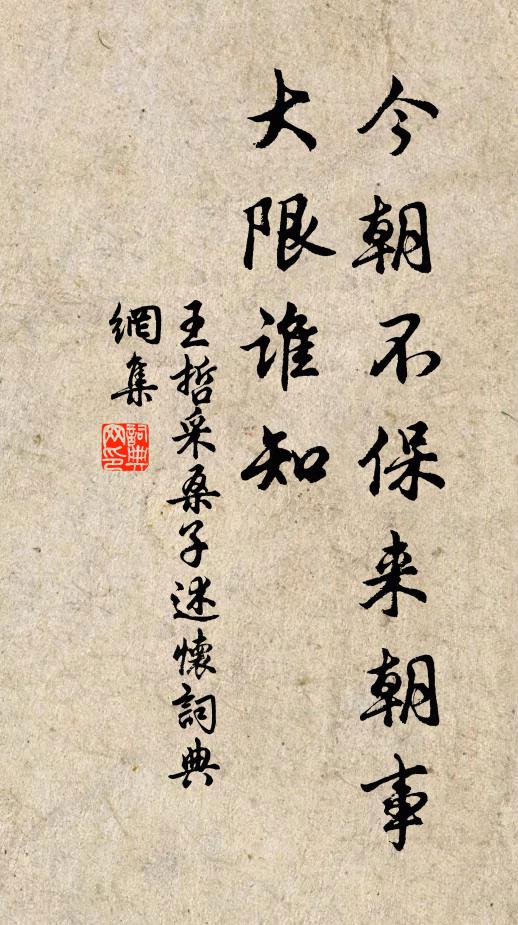 今朝不保来朝事
大限谁知
王哲采桑子述懷詞典
網集
詞典网印